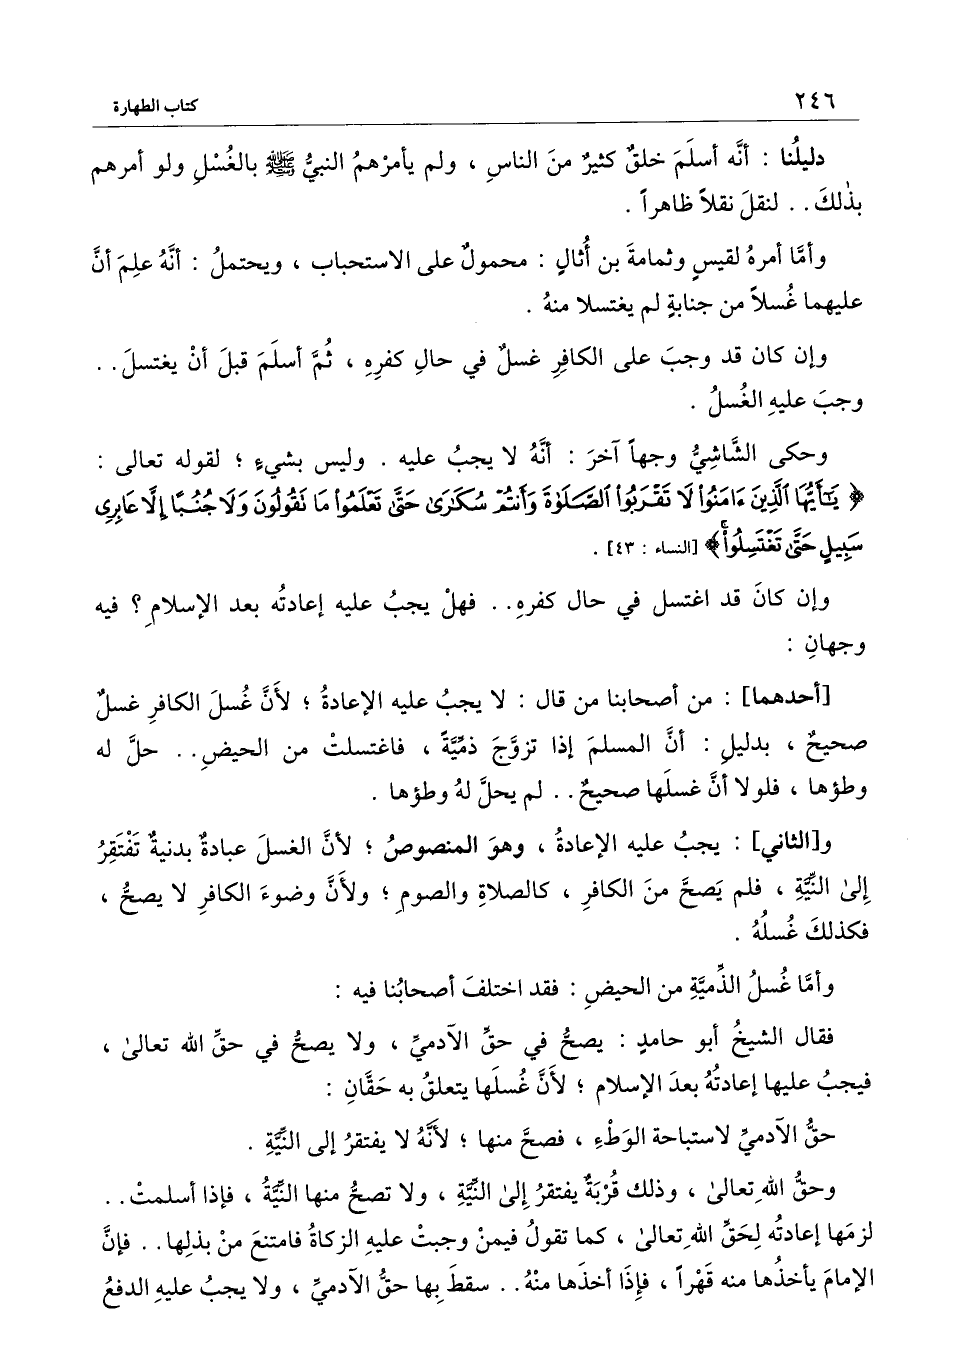 ٢٤٦
كتاب الطهارة
دليلُنا : أنَّه أسلَمَ خلقٌ كثيرٌ منَ الناسِ ، ولم يأمرْهمُ النبيُّ ﷺ بالغُسْلِ ولو أمرهم
بذٰلكَ . . لنقلَ نقلاً ظاهراً .
وأمَّا أمرهُ لقيسٍ وثمامةَ بن أُثالٍ : محمولٌ على الاستحباب ، ويحتملُ : أنَّهُ علِمَ أنَّ
عليهما غُسلاً من جنابةٍ لم يغتسلا منهُ .
وإن كان قد وجبَ على الكافِرِ غسلٌ في حالِ كفرِهِ ، ثُمَّ أسلَمَ قبلَ أنْ يغتسلَ . .
وجبَ عليهِ الغُسلُ .
وحكى الشَّاشِيُّ وجهاً آخرَ : أنَّهُ لا يجبُ عليه . وليس بشيءٍ ؛ لقوله تعالى :
﴿ يَٰٓأَيُّهَا ٱلَّذِينَ ءَامَنُوا۟ لَا تَقْرَبُوا۟ ٱلصَّلَوٰةَ وَأَنتُمْ سُكَٰرَىٰ حَتَّىٰ تَعْلَمُوا۟ مَا تَقُولُونَ وَلَا جُنُبًا إِلَّا عَابِرِى
سَبِيلٍ حَتَّىٰ تَغْتَسِلُوا۟ ۚ﴾ [النساء : ٤٣] .
وإن كانَ قد اغتسل في حال كفرهِ . . فهلْ يجبُ عليه إعادتُه بعد الإسلامِ ؟ فيه
وجهانِ :
[أحدهما] : من أصحابنا من قال : لا يجبُ عليه الإعادةُ ؛ لأَنَّ غُسلَ الكافرِ غسلٌ
صحيحٌ ، بدليلِ : أنَّ المسلمَ إذا تزوَّجَ ذمِّيَّةً ، فاغتسلتْ من الحيضِ . . حلَّ له
وطؤها ، فلولا أنَّ غسلَها صحيحٌ . . لم يحلَّ لهُ وطؤها .
و[الثاني] : يجبُ عليه الإعادةُ ، وهوَ المنصوصُ ؛ لأنَّ الغسلَ عبادةٌ بدنيةٌ تَفْتَقِرُ
إلىٰ النِّيَّةِ ، فلم يَصحَّ منَ الكافرِ ، كالصلاةِ والصومِ ؛ ولأَنَّ وضوءَ الكافرِ لا يصحُّ ،
فكذلكَ غُسلُهُ .
وأمَّا غُسلُ الذِّميَّةِ من الحيضِ : فقد اختلفَ أصحابُنا فيه :
فقال الشيخُ أبو حامدٍ : يصحُّ في حقِّ الآدميِّ ، ولا يصحُّ في حقِّ الله تعالىٰ ،
فيجبُ عليها إعادتُهُ بعدَ الإسلام ؛ لأَنَّ غُسلَها يتعلقُ به حَقَّانِ :
حقُّ الآدميِّ لاستباحة الوَطْءِ ، فصحَّ منها ؛ لأنَّهُ لا يفتقرُ إلى النِّيَّةِ .
وحقُّ اللهِ تعالىٰ ، وذلك قُرْبَةٌ يفتقرُ إلىٰ النِّيَّةِ ، ولا تصحُّ منها النِّيَّةُ ، فإذا أسلمتْ . .
لزمَها إعادتُه لِحَقِّ اللهِ تعالىٰ ، كما تقولُ فيمنْ وجبتْ عليهِ الزكاةُ فامتنعَ منْ بذلِها . . فإنَّ
الإمامَ يأخذُها منه قَهْراً ، فإِذَا أخذَها منْهُ . . سقطَ بِها حقُّ الآدميِّ ، ولا يجبُ عليهِ الدفعُ